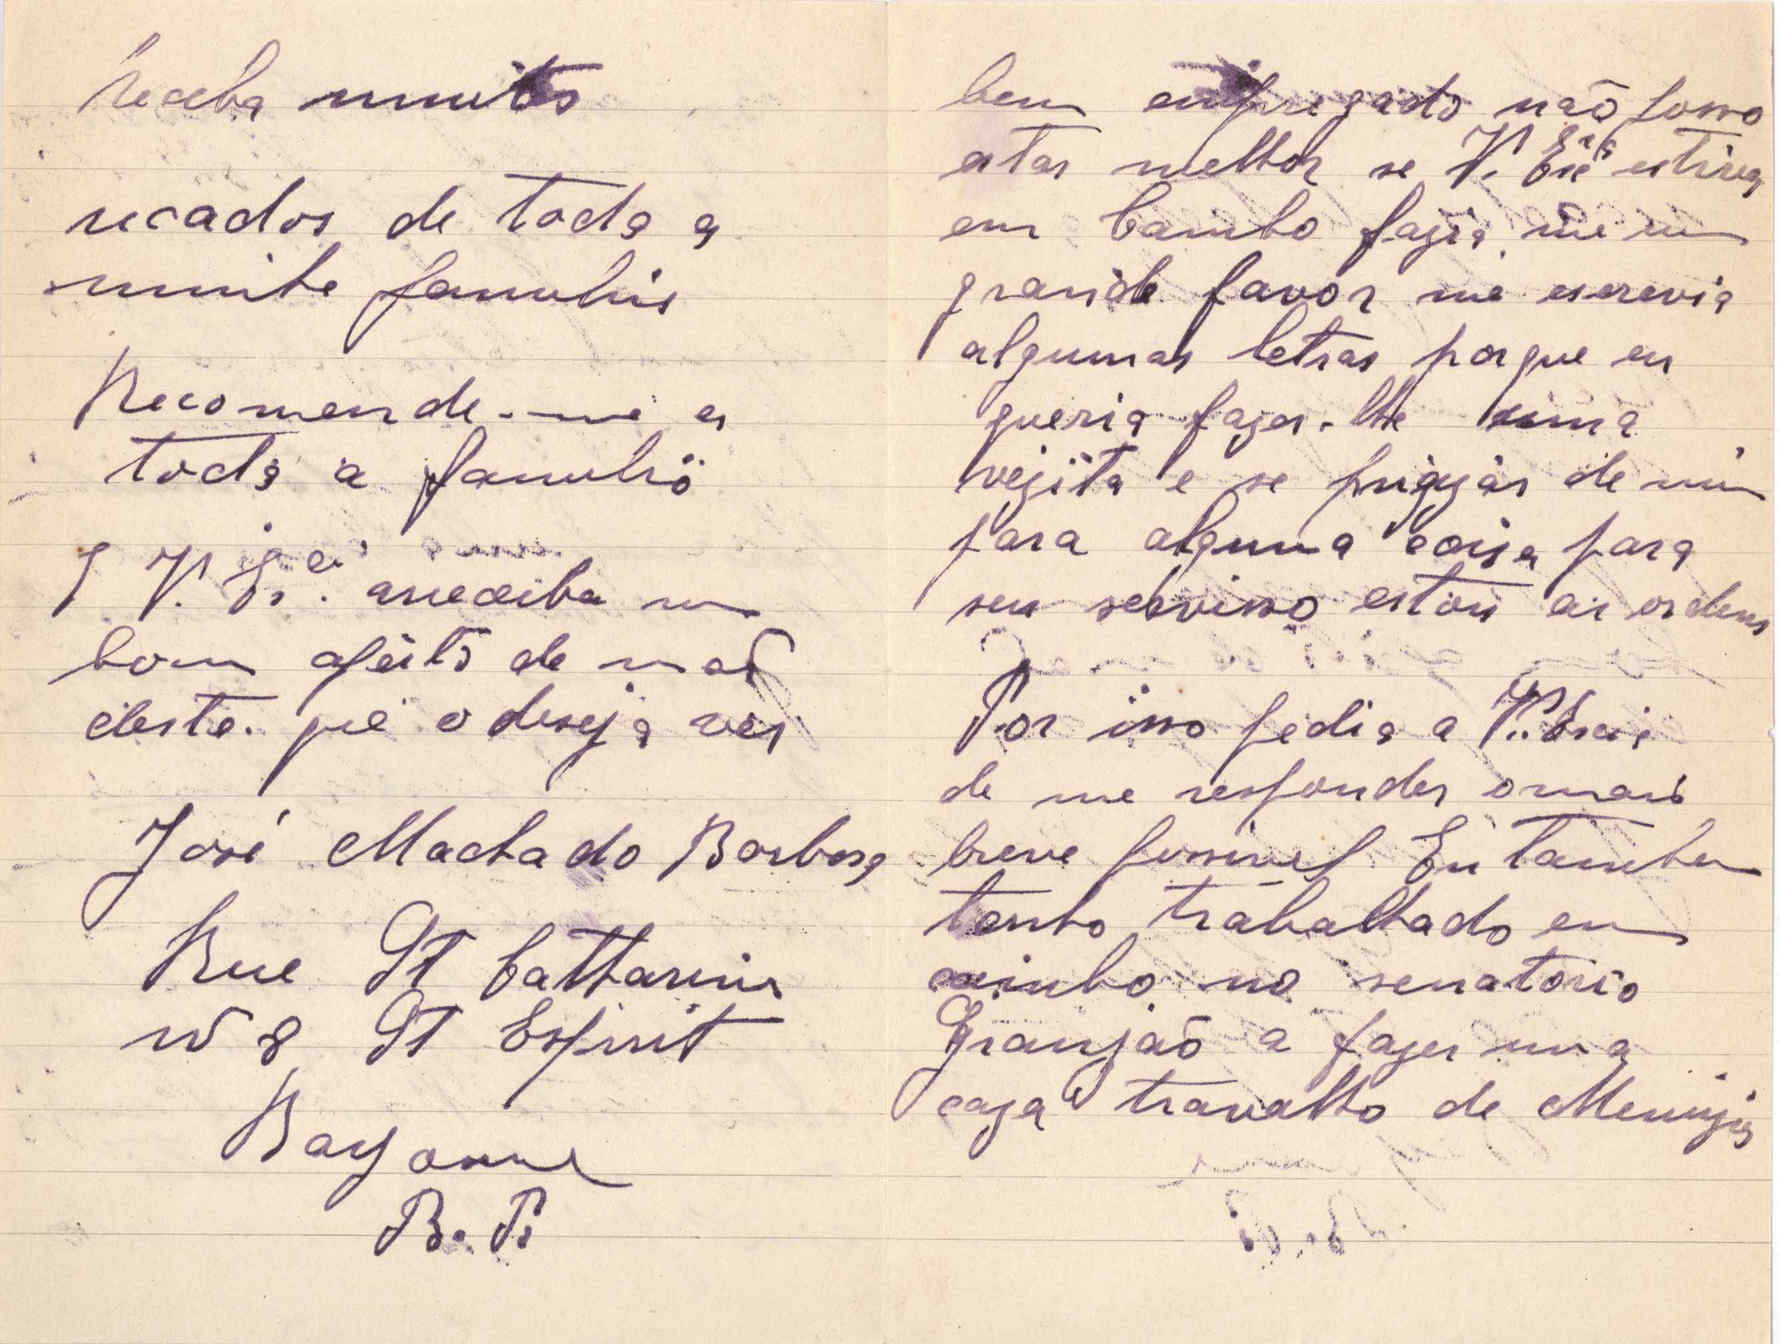 Receba muitos
recados de toda a
minha familia
Recomende-me a
toda a familia
V. arreceiba um
bom apeito de mao
deste que o deseja ver
José Machado Barbosa
Rue St Cattarine
nº 8 St Espirit
Bayonne
B. P.
bem empregado não posso
estar melhor se V. Exª estivese
em Cambo fazia me um
grande favor me escrevia
algumas letras porque eu
queria fazer-lhe uma
vezita e se prizar de mim
para alguma coiza para
seu servisso estou as ordens
Por isso pedia a V. Excia
de me responder o mais
breve possivel Eu tambem
tenho trabalhado em
caimbo no senatorio
Granjaõ a fazer uma
caza travalho de